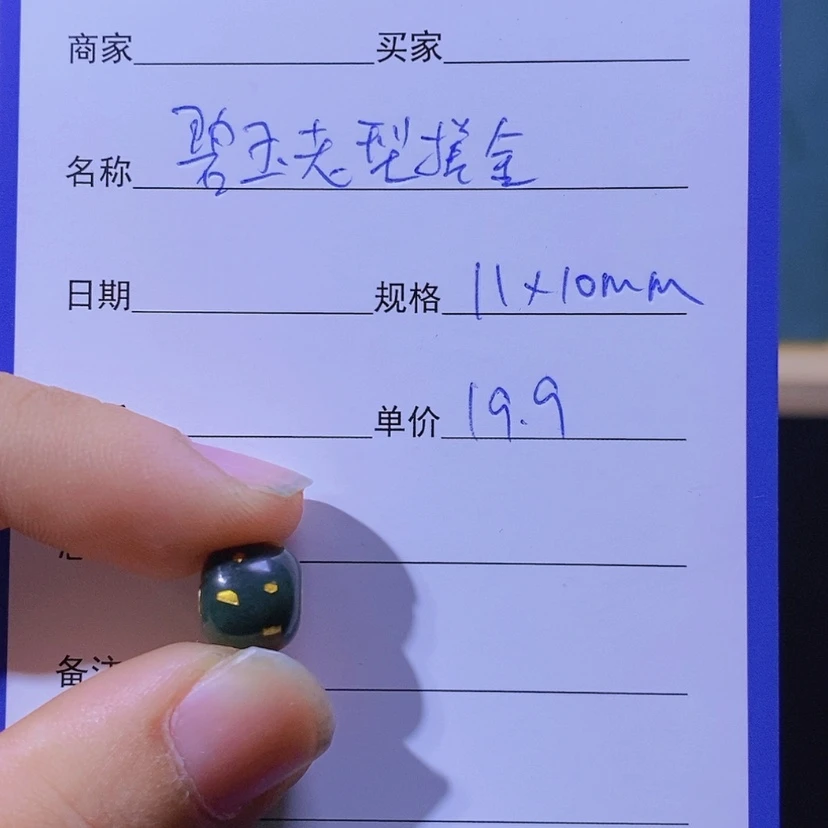 商家 买家
名称 碧玉老型搓金
日期 规格 11×10mm
单价 19.9
备注